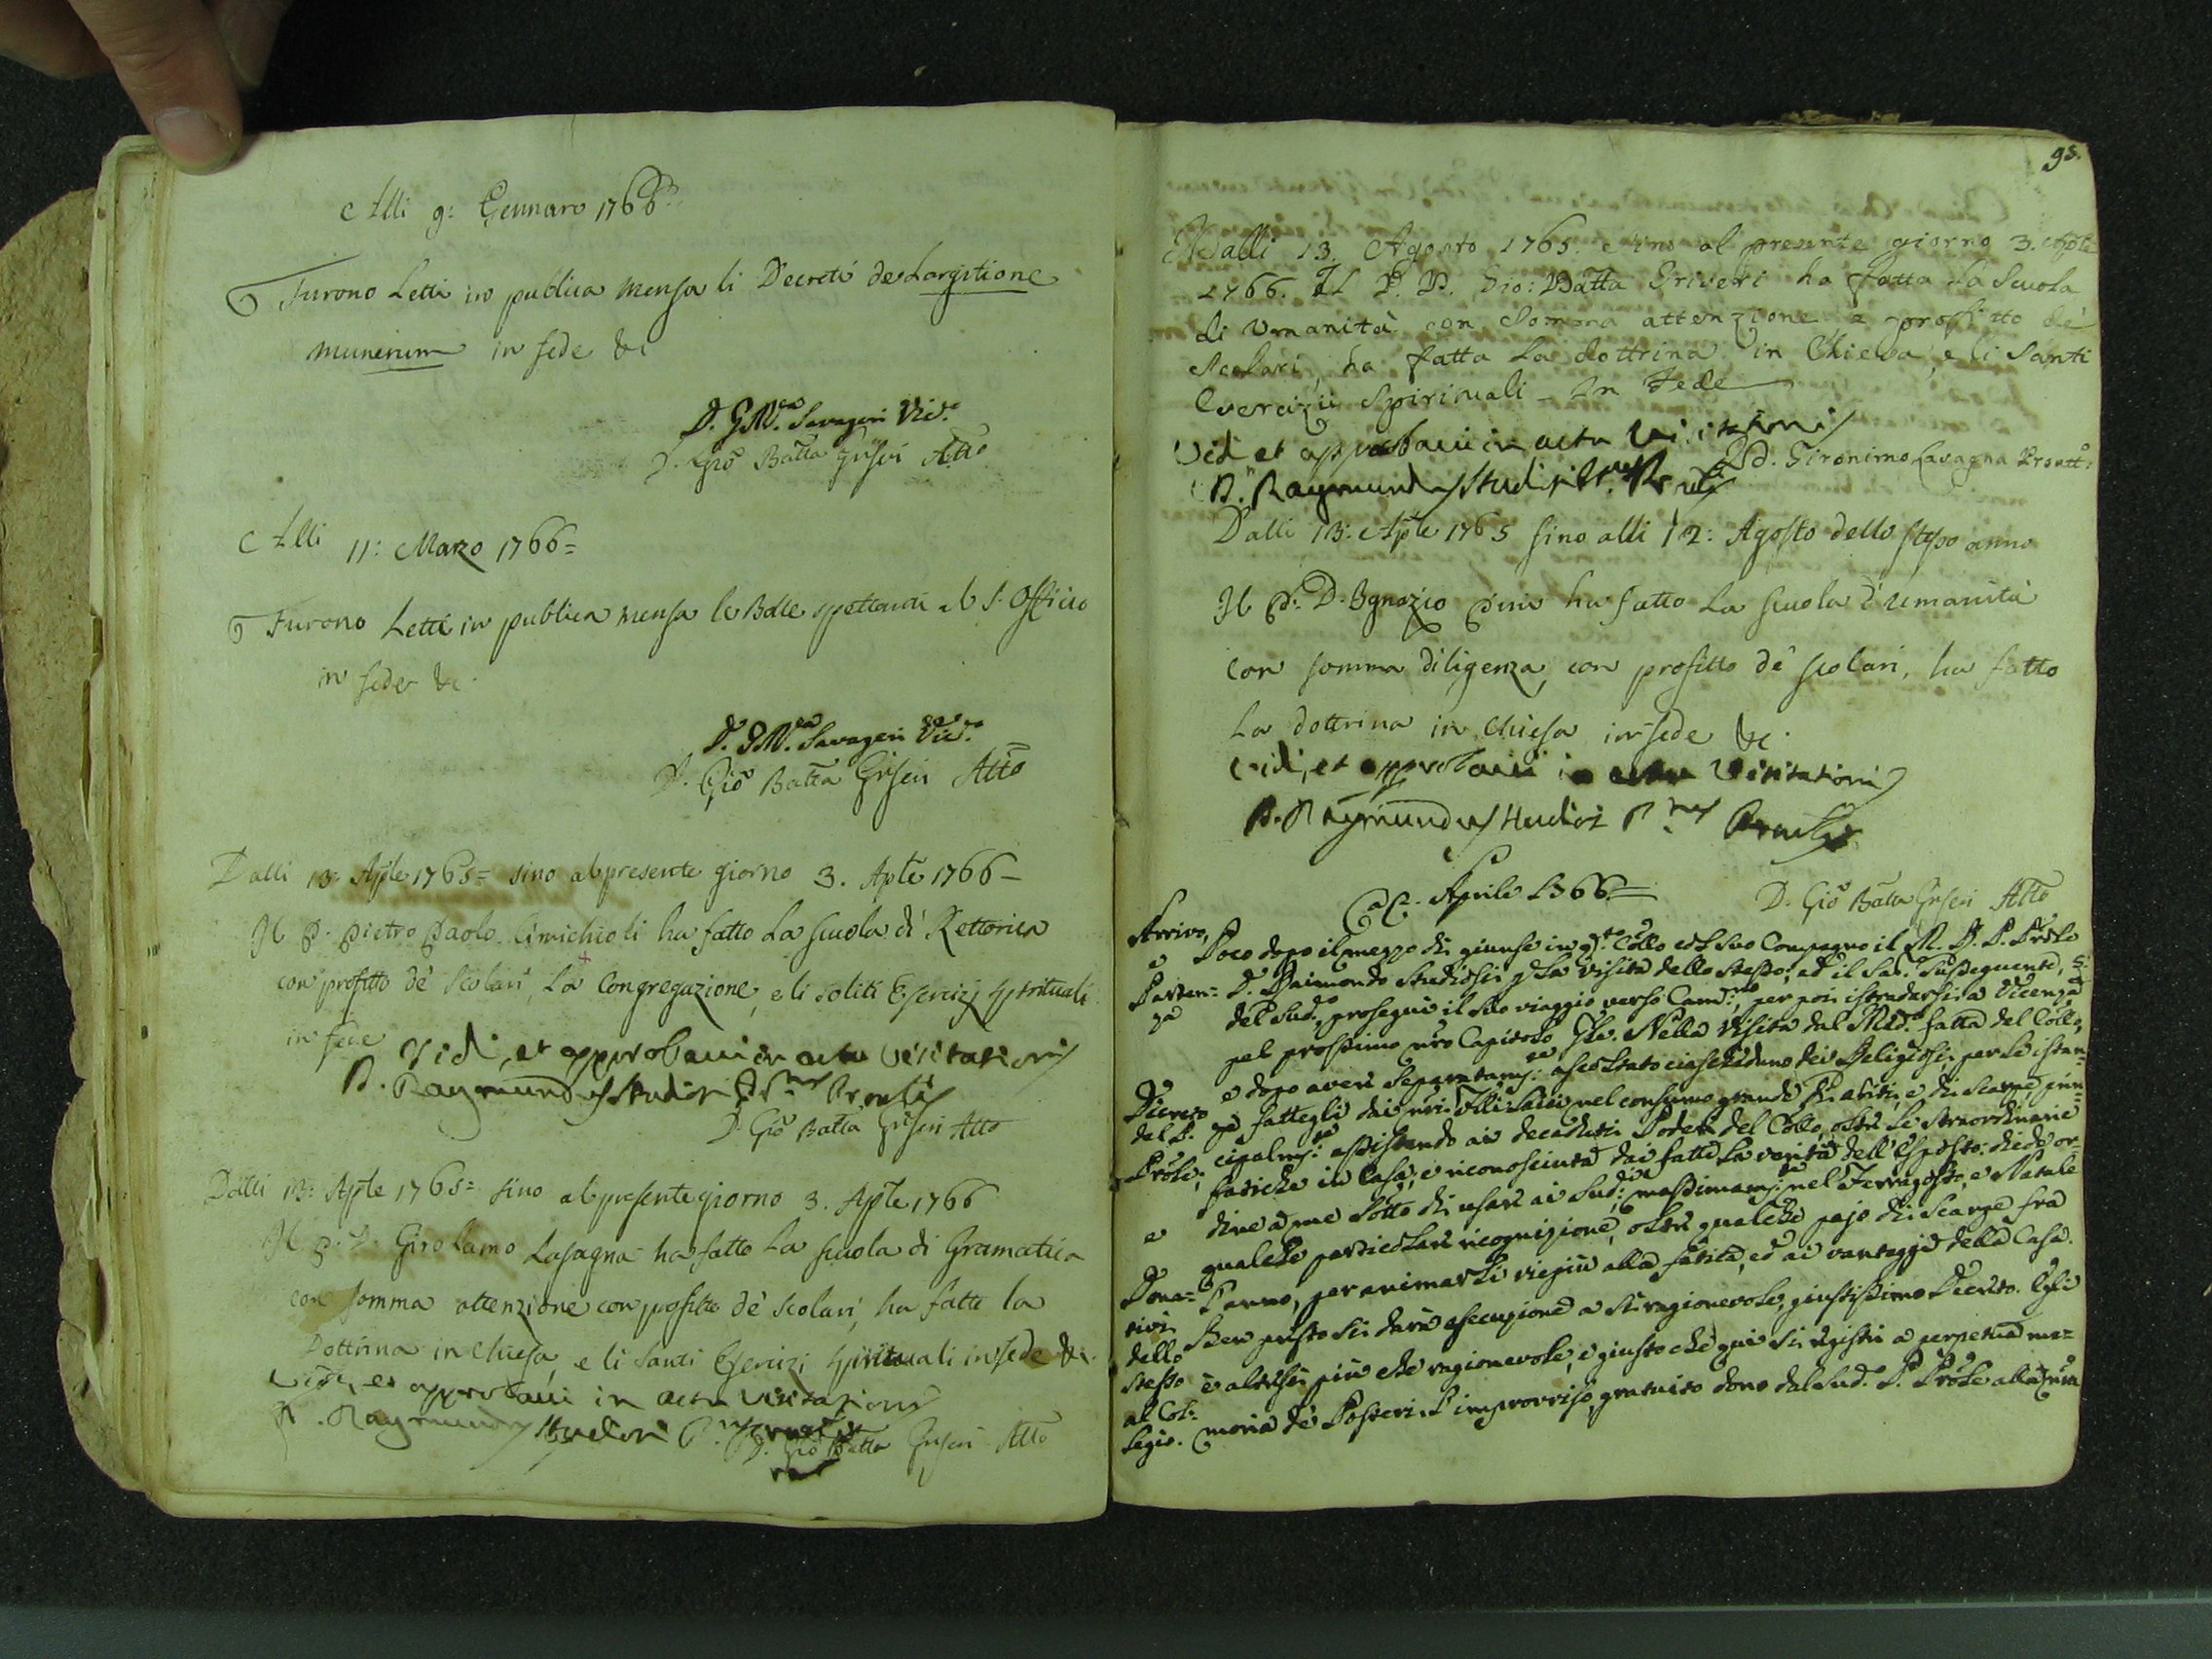 Alli 9: Gennaro 1766
Furono Letti in publica mensa li Decreti de Largitione
munerum in fede &c
D. G. M.a Savageri Vic.o
D. Gio Batta Griseri Atto
Alli 11: Marzo 1766=
Furono Letti in publica mensa le Bolle spettanti al S. Officio
in fede &c.
D. G. M.a Savageri Vic.o
D. Gio Batta Griseri Atto
Dalli 13: Aple 1765= sino al presente giorno 3. Aple 1766-
Il P. Pietro Paolo ha fatto La scuola di Rettorica
con profitto de' Scolari, La Congregazione, e li soliti Esercizj spirituali
in fede
Vidi, et approbavi in actu Visitationis
D. Raymundus Studiosi
D. Gio Batta Griseri Atto
Dalli 13: Aple 1765= sino al presente giorno 3. Aple 1766
Il P. D. Girolamo Lasagna ha fatto La scuola di Gramatica
con somma attenzione con profitto de' scolari, ha fatto la
Dottrina in Chiesa e li santi Esercizi spirituali in fede &c.
Vidi, et approbavi in actu Visitationis
D. Raymundus Studiosi
D. Gio Batta Griseri Atto
98.
Dalli 13. Agosto 1765. sino al presente giorno 3. Aple
1766. Il P. D. Gio: Batta Griseri ha fatta La Scuola
di Umanità con Somma attenzione, e profitto de'
Scolari, ha fatta La dottrina in Chiesa, e li Santi
Esercizii Spirituali - In Fede
Vidi et approbavi in actu Visitationis
D. Gironimo Lavagna Proatt:
D. Raymundus Studiosi
Dalli 13: Aple 1765 sino alli 12: Agosto dello stesso anno
Il P. D. Ignazio ha fatto La scuola d'umanità
con somma diligenza, con profitto de' scolari, ha fatto
La dottrina in Chiesa in fede &c.
Vidi, et approbavi in actu Visitationis
D. Raymundus Studiosi
D. Gio Batta Griseri Atto
Aprile 1766=
Arrivo, e Parten=za
Poco dopo il mezzo dì giunse in q.to Collo col suo Compagno il M. R. P. Prole
D. Raimondo Studiosi p La visita dello stesso, ed il Sab. sussequente, 5.
del sud.o, proseguì il suo viaggio verso per poi istradarsi a Vicenza
pel prossimo nro Capitolo Gle. Nella Visita dal Med.o fatta del Collo,
e dopo aver separatam.te ascoltato ciascheduno dei Religiosi, per Le istan=
Decreto del P. Prole;
ze fattegli dai nri Flli: Laici nel consumo grande di abiti, e di scarpe, prin=
cipalm.te assistendo ai decaduti Poderi del Collo, oltre Le straordinarie
fatiche in Casa; e riconosciuta dai fatti La verità dell'Esposto; diede or=
dine a me sotto di usare ai Sud.i massimam.te nel Ferragosto, e Natale
e
qualche particolare ricognizione, oltre qualche pajo di scarpe fra
Dona=tivi dello stesso al Col=legio.
l'anno, per animarli viepiù alla fatica, ed ai vantaggi della Casa.
Ben presto si darà esecuzione a sì ragionevole, giustissimo Decreto. Egli
è altresì più che ragionevole, e giusto che qui si registri a perpetua me=
moria de' Posteri L'improvviso, gratuito dono dal sud.o P. Prole alla nra